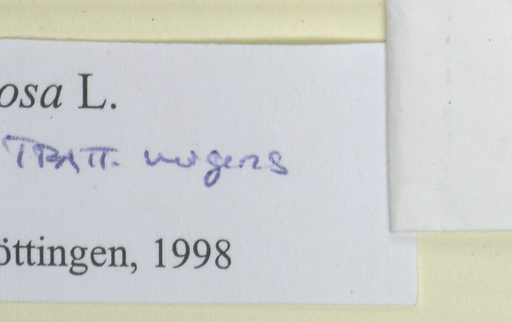 osa L.
TRATT.
öttingen, 1998